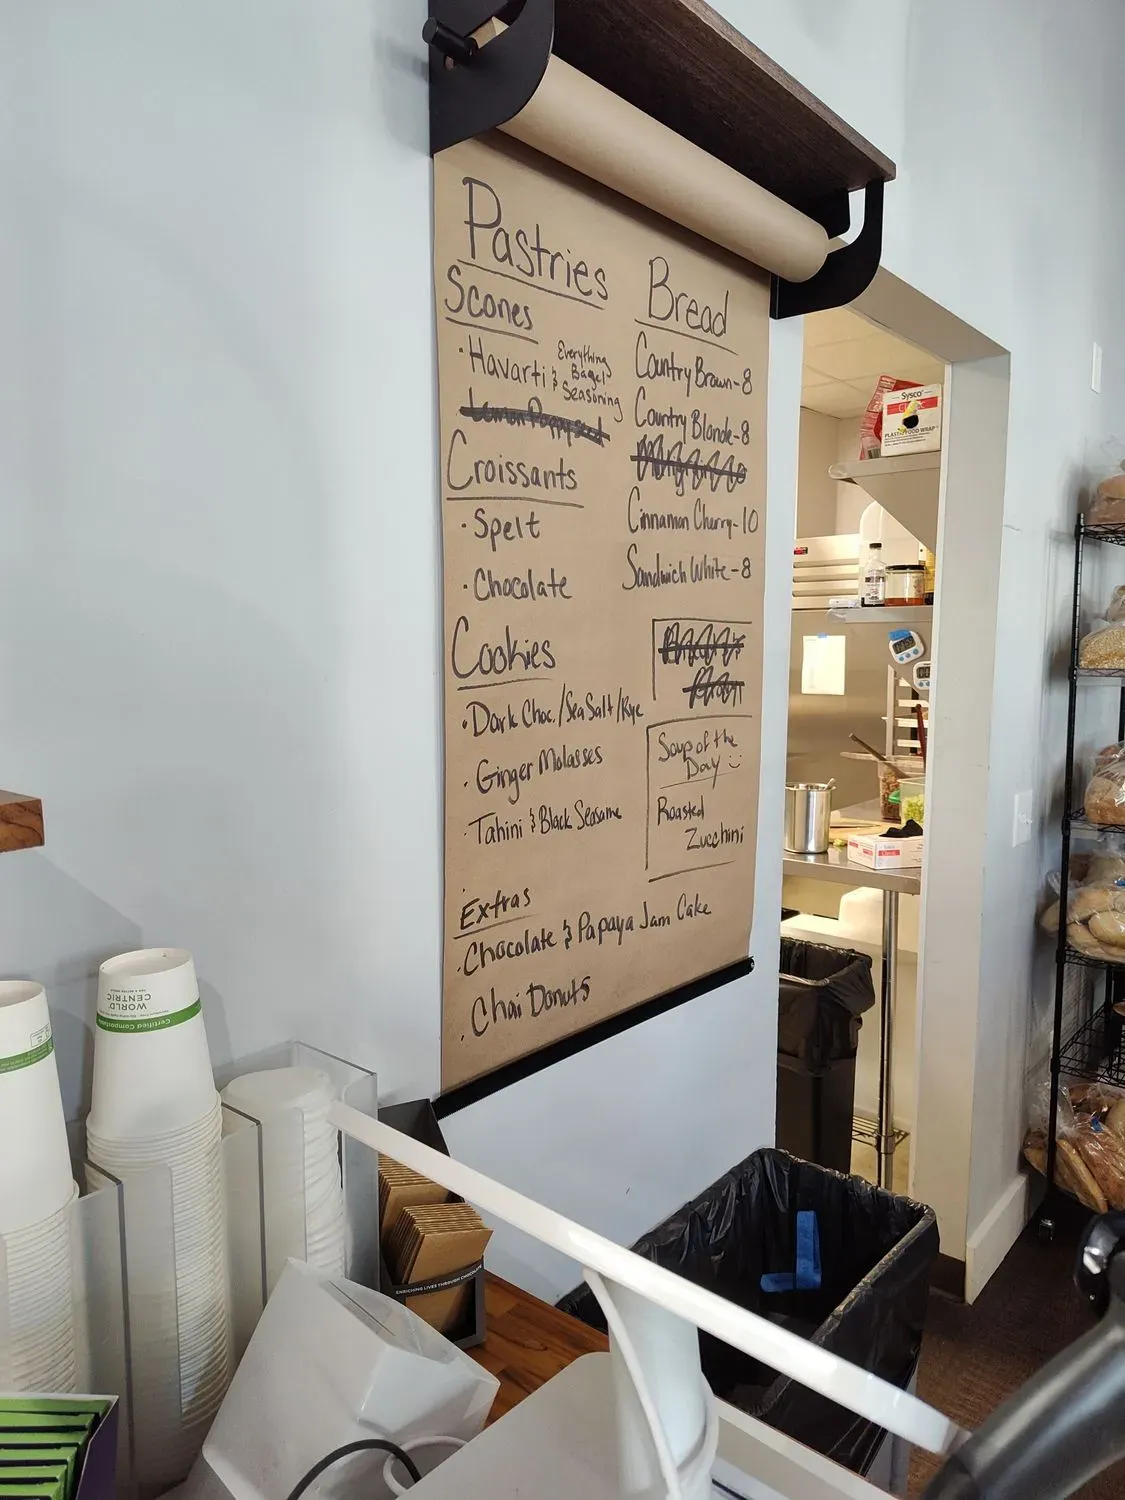 Pastries
Scones
· Havarti & Everything
Bagel
Seasoning
Lemon Poppyseed
Croissants
· Spelt
· Chocolate
Cookies
· Dark Choc./Sea Salt/Rye
· Ginger Molasses
· Tahini & Black Seasame
Extras
· Chocolate & Papaya Jam Cake
· Chai Donuts
Bread
Country Brown-8
Country Blonde-8
Cinnamon Cherry-10
Sandwich White-8
Soup of the
Day
Roasted
Zucchini
Sysco
CLASSIC
PLASTIC FOOD WRAP
WORLD
CENTRIC
Certified Compostable
ENRICHING LIVES THROUGH CHOCOLATE